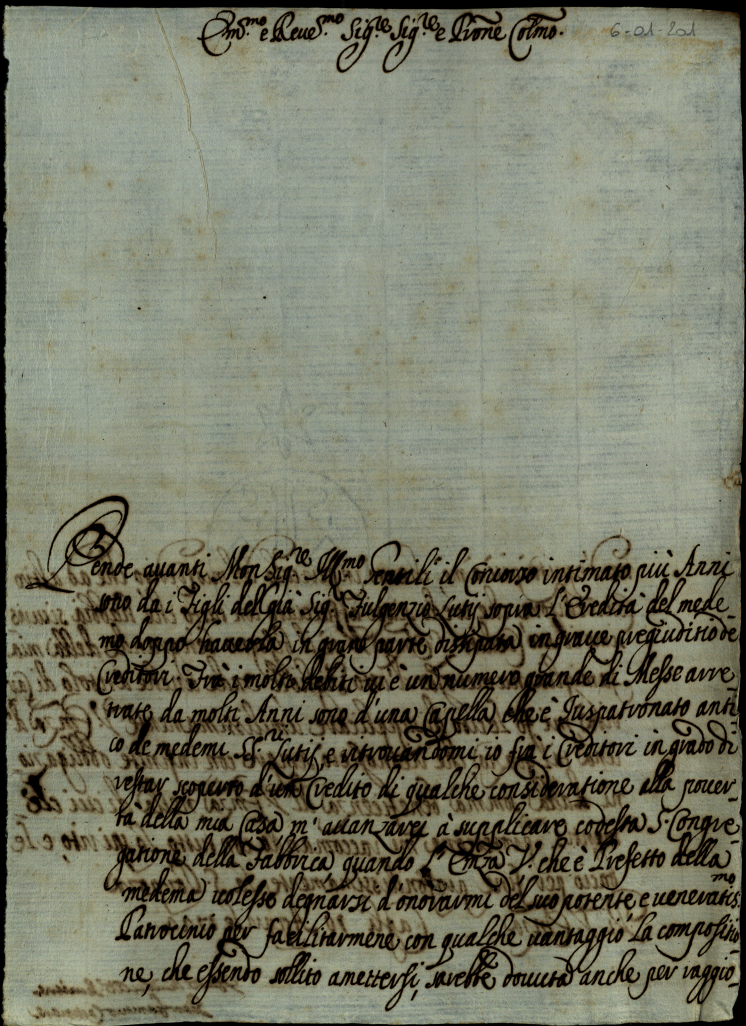 Em.mo e Reue.mo Sig.re Sig.re e Prone Colmo.
6-01-201
Pende auanti Monsig.re Ill.mo Gentili il Concorso intimato più Anni
sono da i Figli del già Sig. Fulgenzio Lutij sopra L'Eredità del mede-
mo doppo hauerla in gran parte dissipata in graue pregiuditio de
Creditori. Frà i molti debiti ui è un numero grande di Messe arre
trate da molti Anni sono d'una Capella, che è Juspatronato anti
co de medemi SS.ri Lutij, e ritrouandomi io frà i Creditori in grado di
restar scoperto d'un Credito di qualche consideratione alla pouer-
tà della mia Casa m'auanzarei à supplicare codesta S. Congre-
gatione della Fabbrica, quando L'Em.za V. che è Prefetto della
medema uolesse degnarsi d'onorarmi del suo potente, eueneratis.mo
Patrocinio per facilitarmene con qualche uantaggio La compositio-
ne, che essendo sollito amettersi, sarebbe douuta anche per raggio-